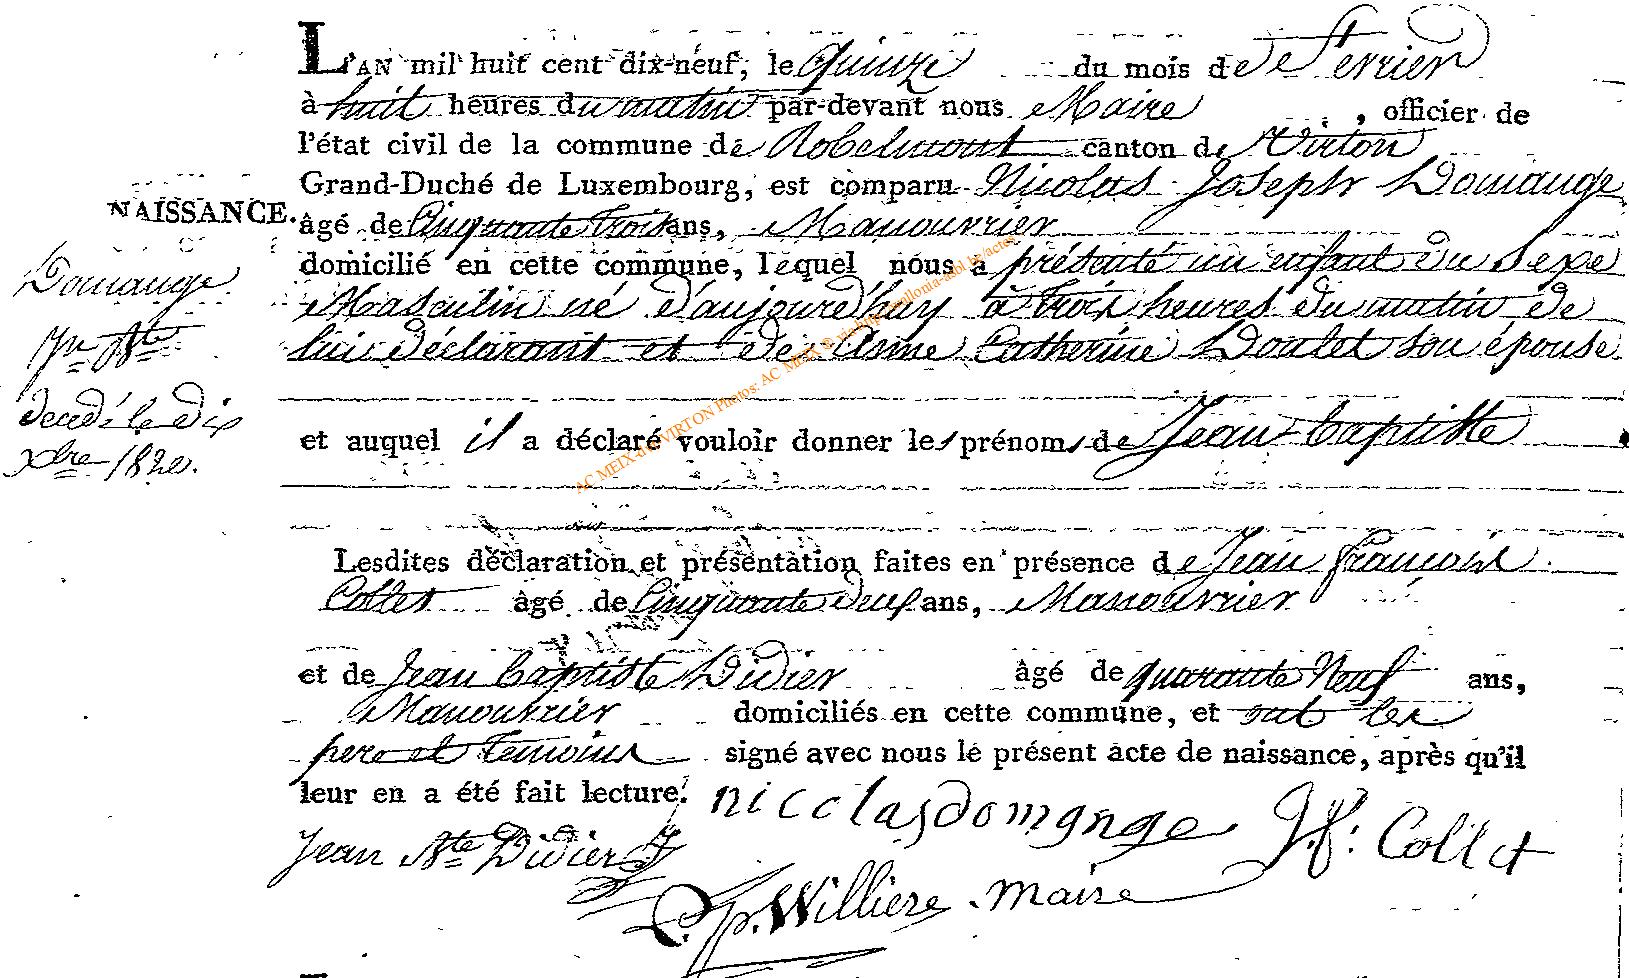 L'AN mil huit cent dix-neuf, le quinze du mois de fevrier
à huit heures du matin par-devant nous Maire , officier de
l'état civil de la commune de Robelmont canton de Virton
Grand-Duché de Luxembourg, est comparu Nicolas Joseph Domange
âgé de Cinquante trois ans, Manouvrier
domicilié en cette commune, lequel nous a présenté un enfant du Sexe
Masculin né d'aujourd'huy à trois heures du matin de
lui déclarant et de Catherine Doulet son épouse
et auquel il a déclaré vouloir donner les prénoms de Jean baptiste
Lesdites déclaration et présentation faites en présence de Jean françois
Collet âgé de Cinquante deux ans, Manouvrier
et de Jean baptiste Didier âgé de quarante Neuf ans,
Manouvrier domiciliés en cette commune, et ont les
pere et temoins signé avec nous le présent acte de naissance, après qu'il
leur en a été fait lecture.
nicolas domange J. f: Collet
Jean Bte Didier
Willieze Maire
NAISSANCE.
Domange
Jn Bte
decedé le dix
xbre 1820.
AC MEIX-dt-VIRTON Photos: AC MEIX